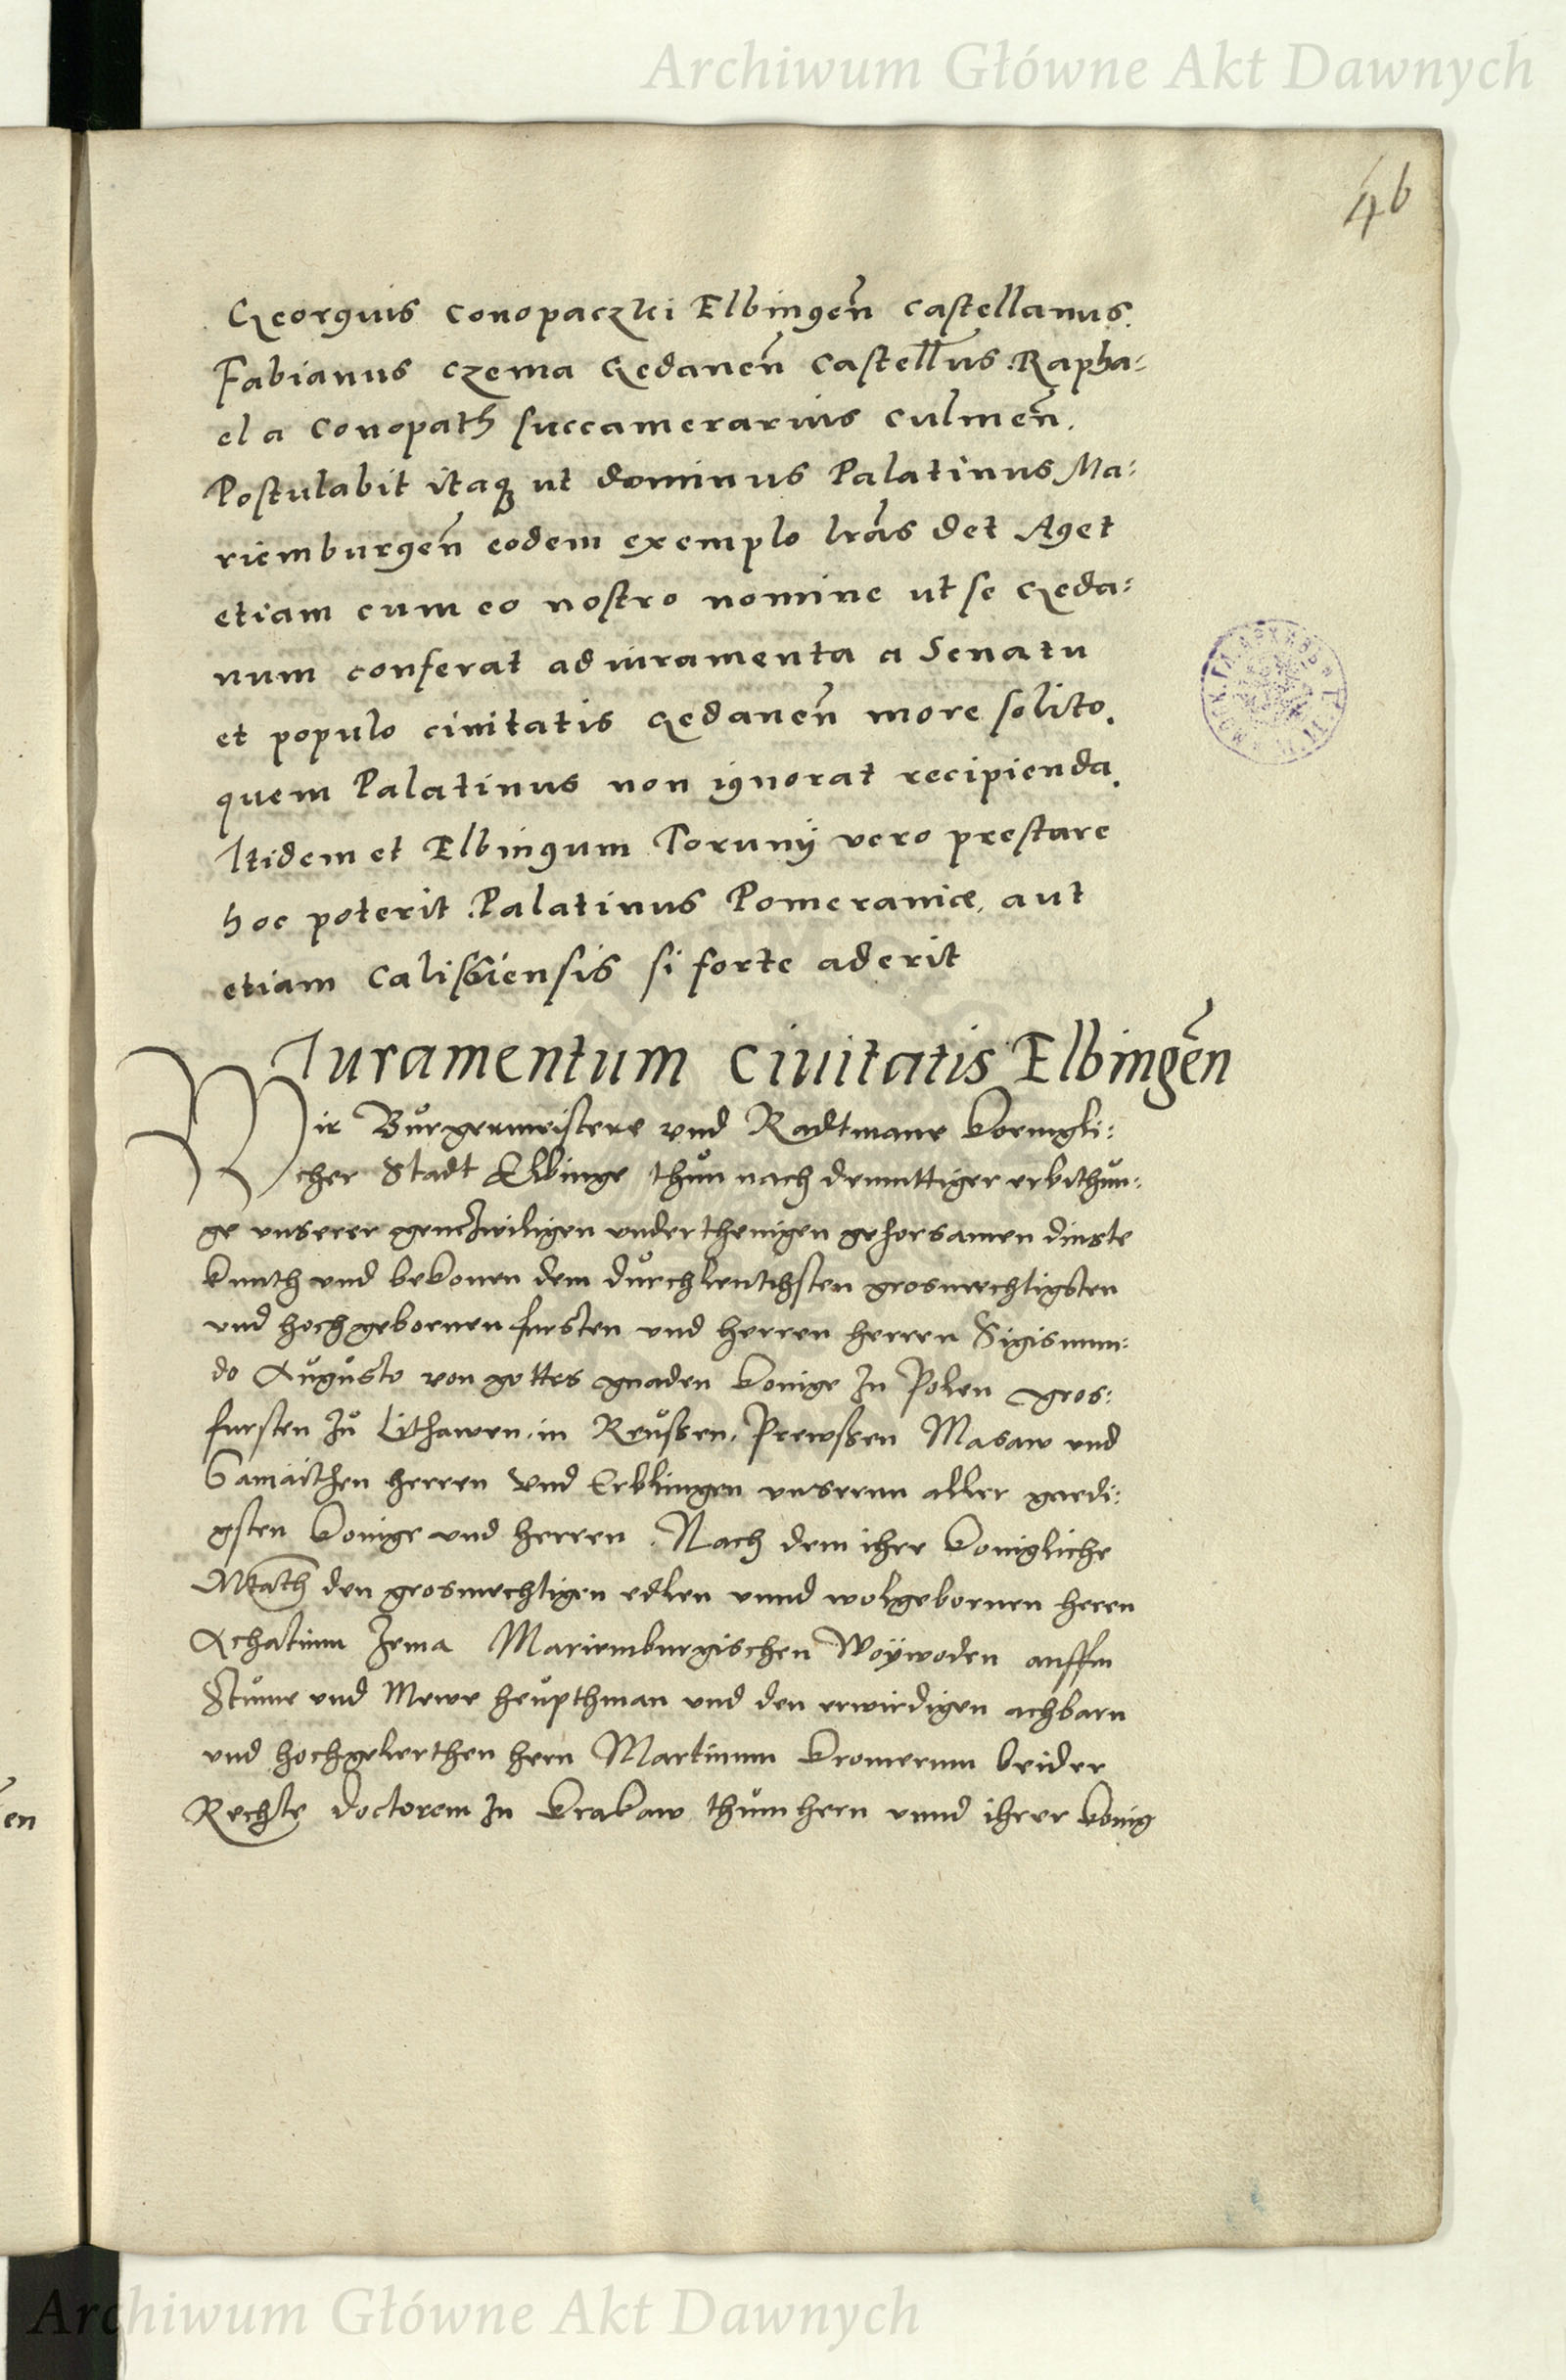 Archiwum Główne Akt Dawnych
46
Georguis Conopaczki Elbingeñ castellanus.
Fabianus Czema Gedaneñ Castell̃us. Rapha:
el a Conopath succamerarius Culmeñ.
Postulabit itaq̨ ut dominus Palatinus Ma:
riemburgeñ eodem exemplo lr̃as det Aget
etiam cum eo nostro nomine ut se Geda:
num conferat ad iuramenta a Senatu
et populo ciuitatis Gedaneñ more solito.
quem Palatinus non ignorat recipienda.
Itidem et Elbingum Torunij vero prestare
hoc poterit. Palatinus Pomeraniæ, aut
etiam Calissiensis si forte aderit
Iuramentum Ciuitatis Elbingeñ
Wir Bůrgermeistere vnd Radtmane koenigli:
cher Stadt Elbinge thůn nach demuttiger erbithůn:
ge vnserer gentzwiligen vnderthenigen gehorsamen dinste
kunth vnd bekonen dem důrchleutihsten grosmechtigsten
vnd hochgebornen fursten vnd herren herren Sigismun:
do Aůgůsto von gottes gnaden konige In Polen gros:
fursten Zů Lithawen, in Reůssen, Prewssen Masaw vnd
Samaithen herren vnd Erblingen vnserem aller gnedi:
gsten konige vnd herren. Nach dem ihre konigliche
Mtath den grosmechtigen edlen vnnd wolgebornen heren
Achatium Zema Mariemburgischen Woÿwoden auffm
Stůme vnd Mewe heůpthman vnd den erwirdigen achbarn
vnd hochgelerthen hern Martinum Kromerum beider
Rechte doctorem In krakaw thůmhern vnnd ihrer konig
en
Archiwum Główne Akt Dawnych